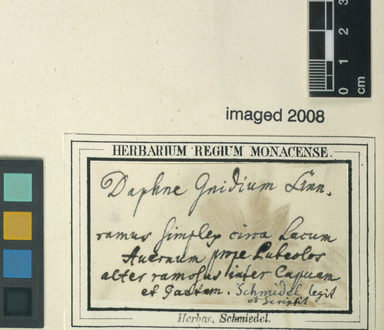 3
2
1
0
cm
imaged 2008
HERBARIUM REGIUM MONACENSE.
Daphne Gnidium Linn.
ramus simplex circa Lacum
Avernum prope Puteolos
alter ramosus inter Capuam
et Gaetam. Schmidel legit
et scripsit
Herbar. Schmiedel.